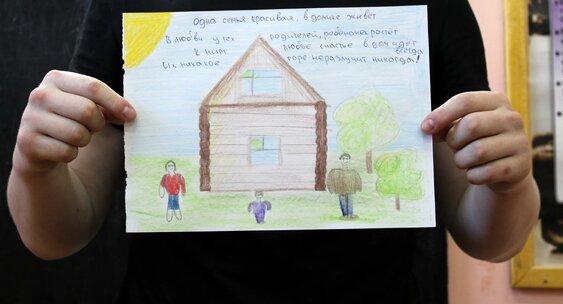 Одна семья красивая, в домике живёт
В любви у тех родителей, ребёночек растёт
К ним любое счастье в дом идёт всегда
Их никакое горе неразлучит никогда!